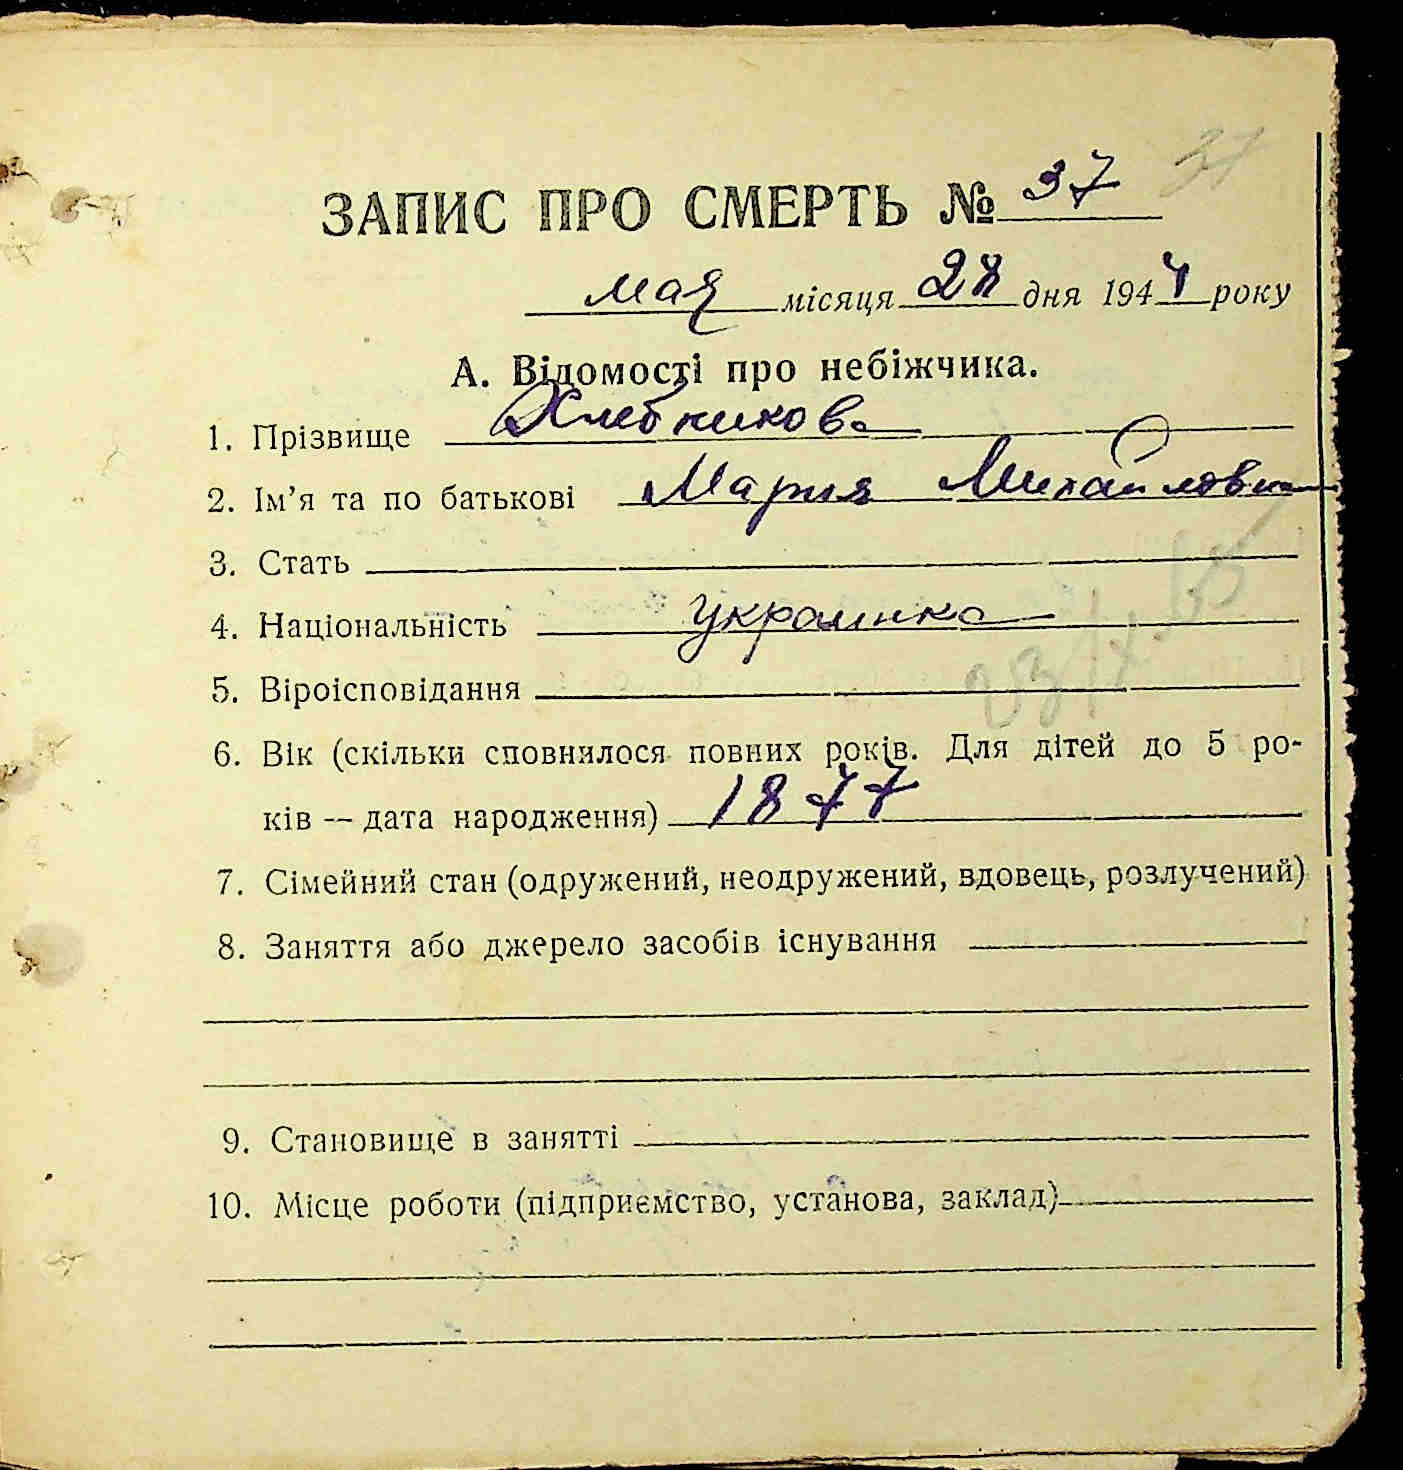 37
ЗАПИС ПРО СМЕРТЬ № 37
мая місяця 28 дня 1944 року
А. Відомості про небіжчика.
1. Прізвище Хлебникова
2. Ім'я та по батькові Мария Михайловна
3. Стать
4. Національність украинка
5. Віроісповідання
6. Вік (скільки сповнилося повних років. Для дітей до 5 ро-
ків — дата народження) 1877
7. Сімейний стан (одружений, неодружений, вдовець, розлучений)
8. Заняття або джерело засобів існування
9. Становище в занятті
10. Місце роботи (підприємство, установа, заклад)